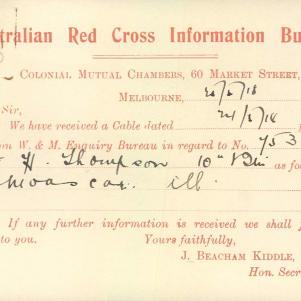 tralian Red Cross Information Bu
COLONIAL MUTUAL CHAMBERS, 60 MARKET STREET,
MELBOURNE,
Sir,
24/5/18
We have received a Cable dated
om W. & M. Enquiry Bureau in regard to No. 753
H. Thompson 10th Bn as fo
Moascar ill
If any further information is received we shall f
to you. Yours faithfully,
J. BEACHAM KIDDLE,
Hon. Secr